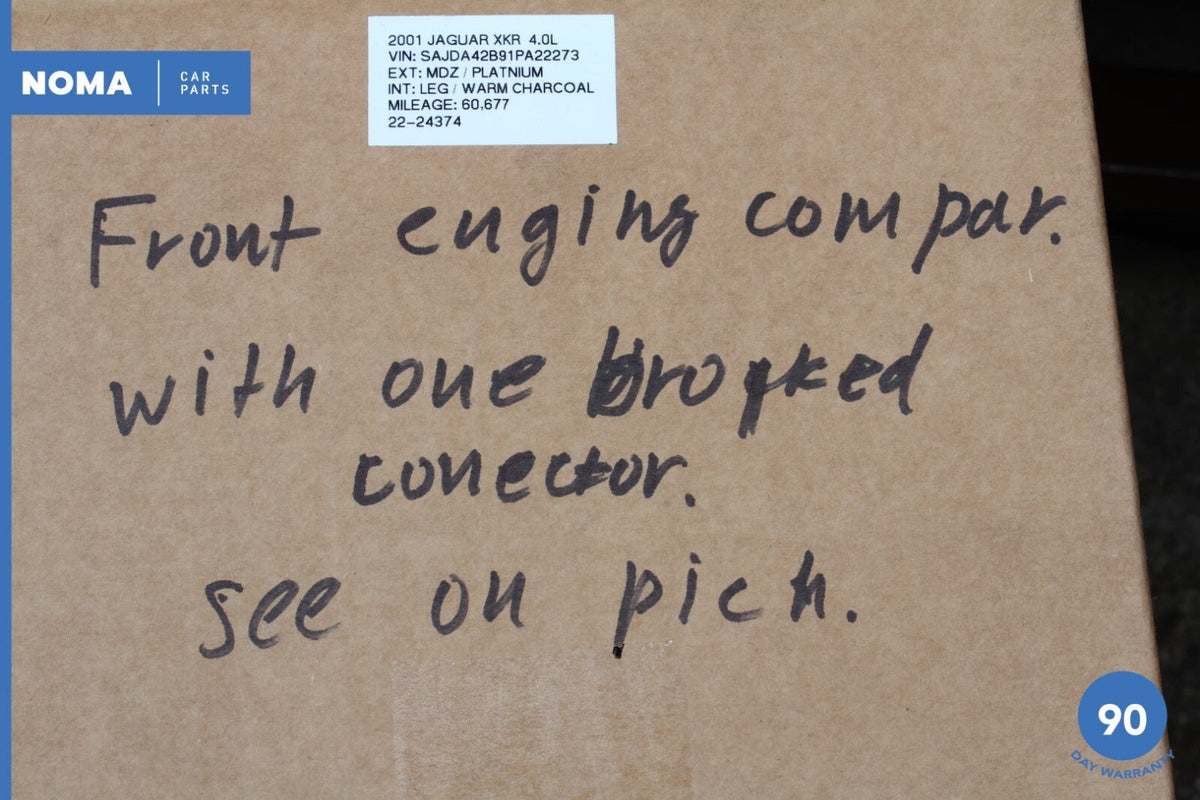 NOMA CAR PARTS
2001 JAGUAR XKR 4.0L
VIN: SAJDA42B91PA22273
EXT: MDZ / PLATNIUM
INT: LEG / WARM CHARCOAL
MILEAGE: 60,677
22-24374
Front enging compar.
with one brocked
conector.
see on pich.
90
DAY WARRANTY